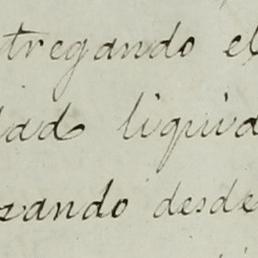 tregando el
dad liquida
zando desde